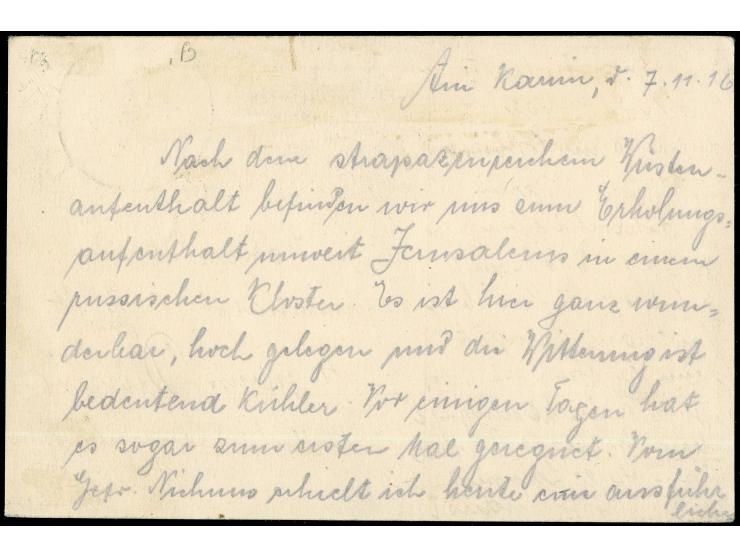 B
Ain Karim, d. 7.11.16
Nach dem strapazenreichem Wüsten-
aufenthalt befinden wir uns zum Erholungs=
aufenthalt unweit Jerusalems in einem
russischen Kloster. Es ist hier ganz wun=
derbar, hoch gelegen und die Witterung ist
bedeutend kühler. Vor einigen Tagen hat
es sogar zum ersten Mal geregnet. Vom
Gefr. erhielt ich heute eine ausführ
liche